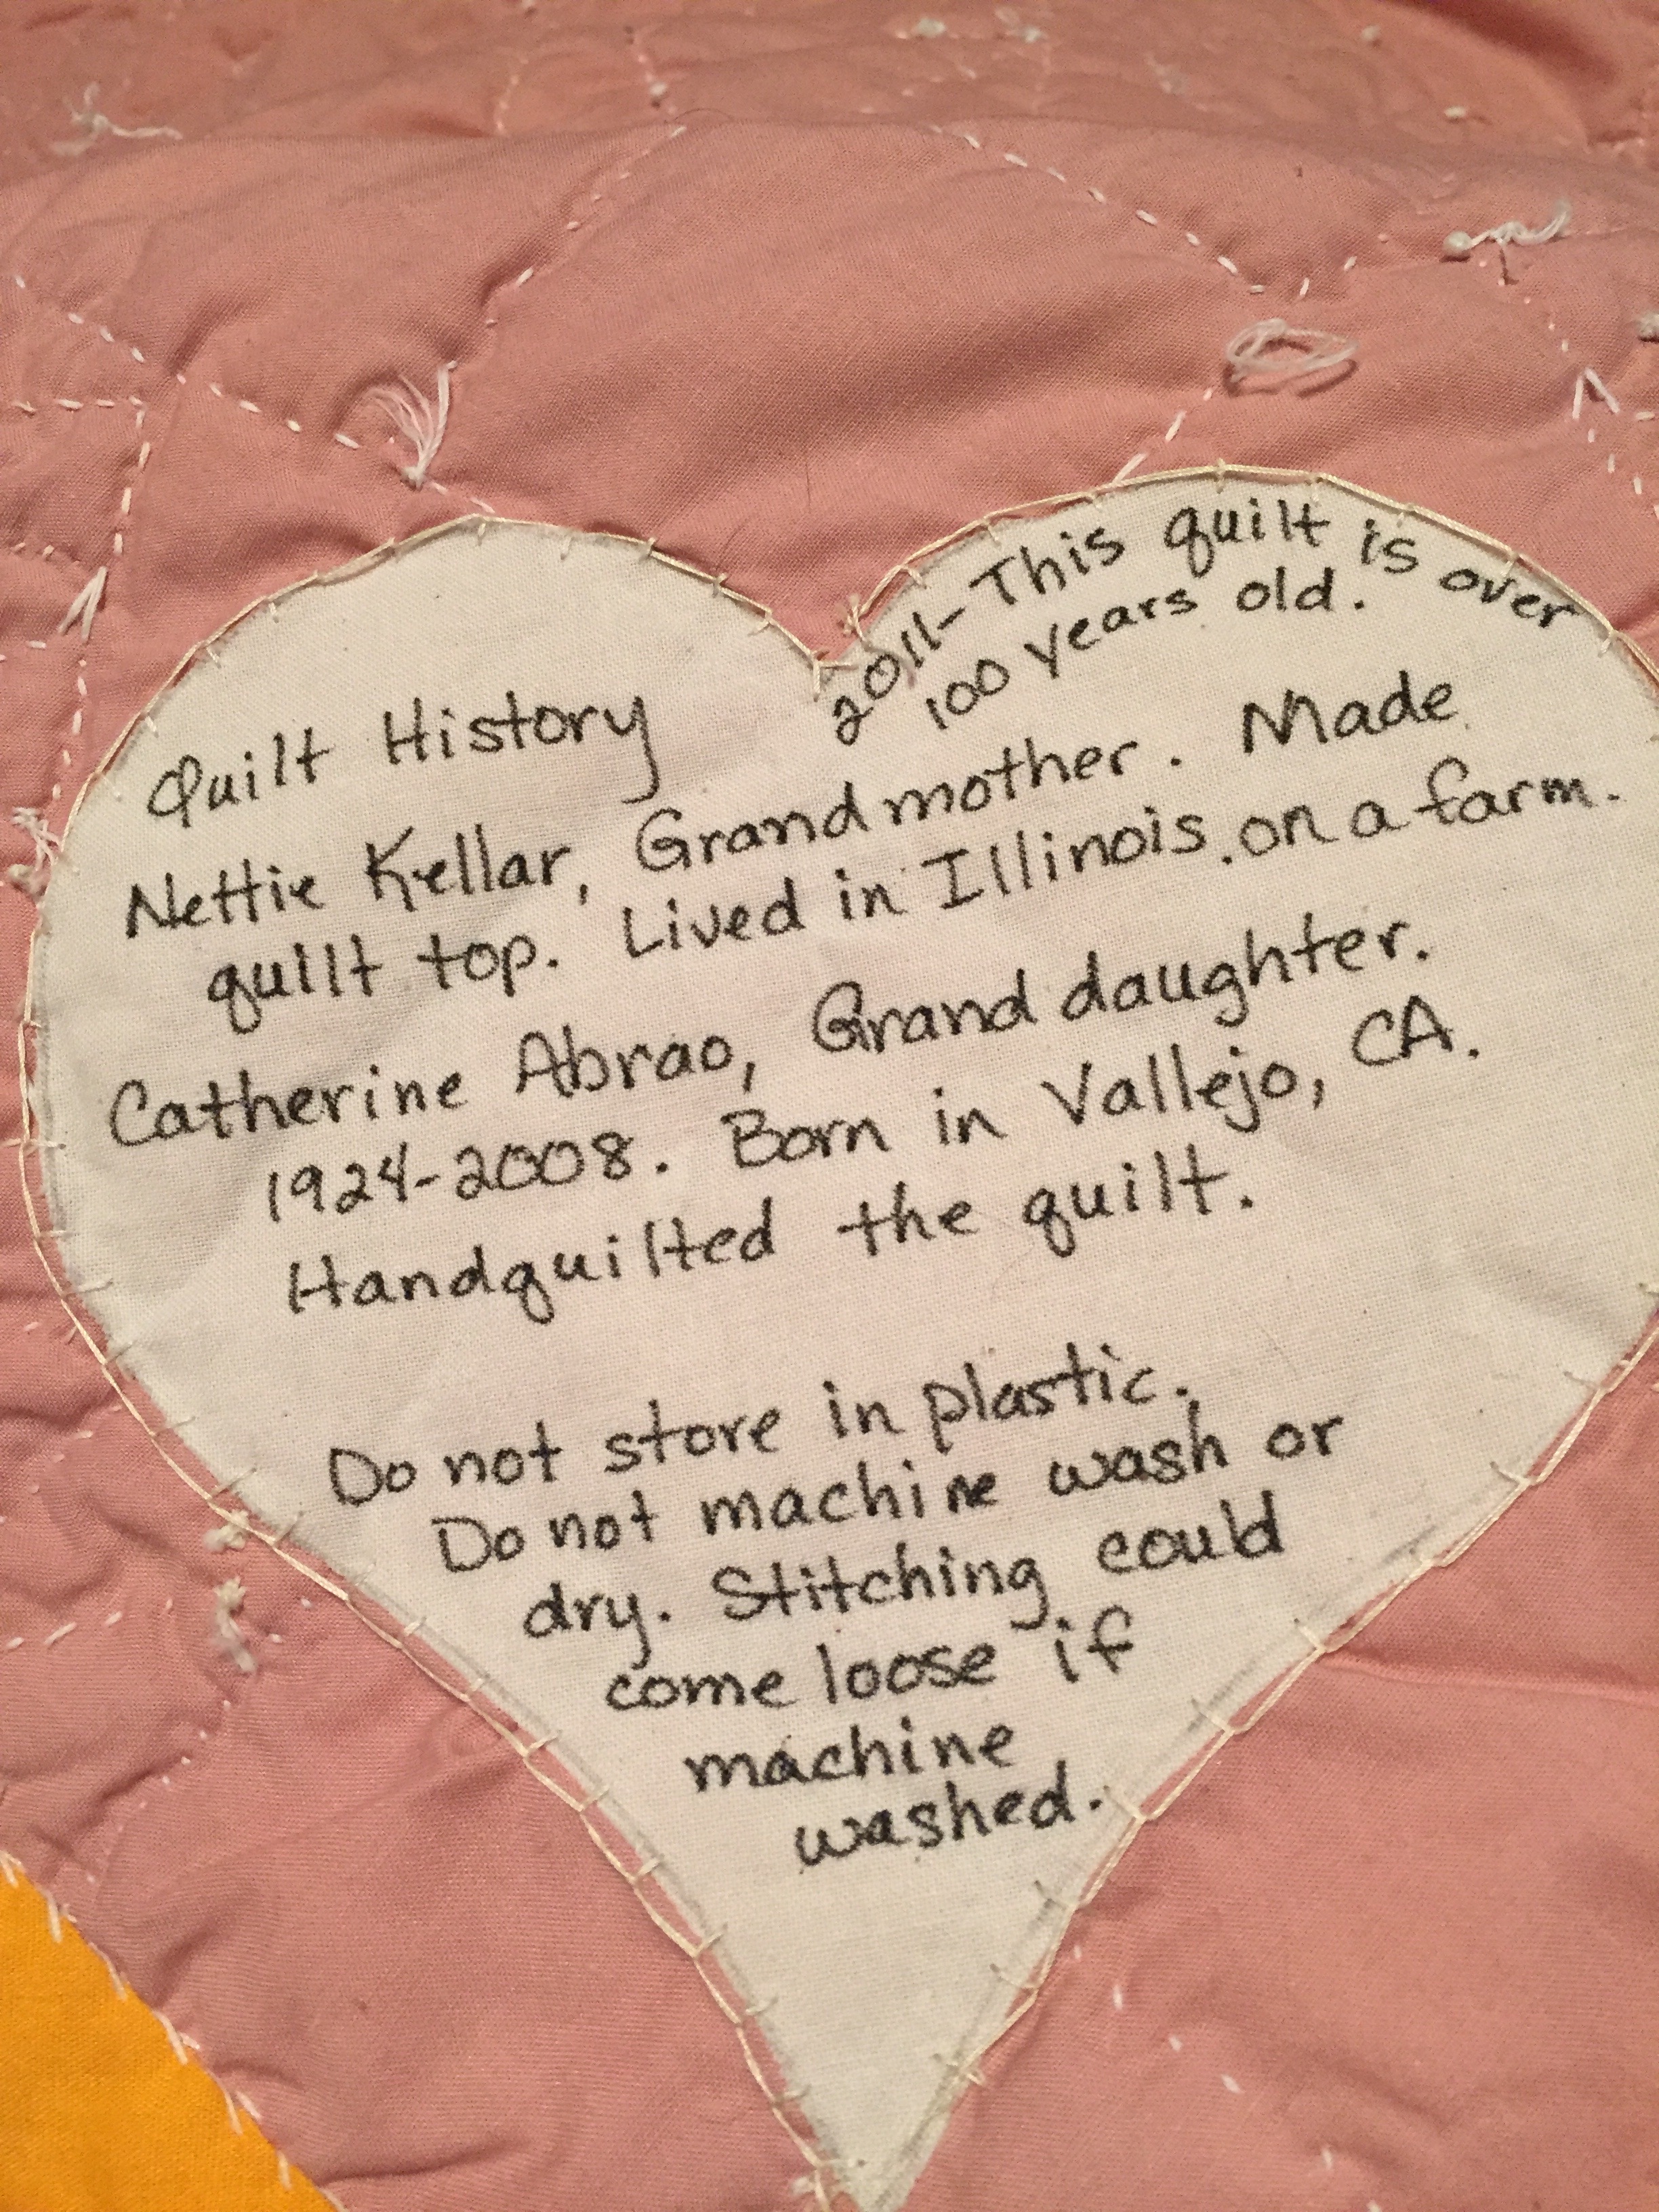 2011-This quilt is over
100 years old.
Quilt History
Nettie Kellar, Grandmother. Made
quilt top. Lived in Illinois.on a farm.
Catherine Abrao, Granddaughter.
1924-2008. Born in Vallejo, CA.
Handquilted the quilt.
Do not store in plastic.
Do not machine wash or
dry. Stitching could
come loose if
machine
washed.